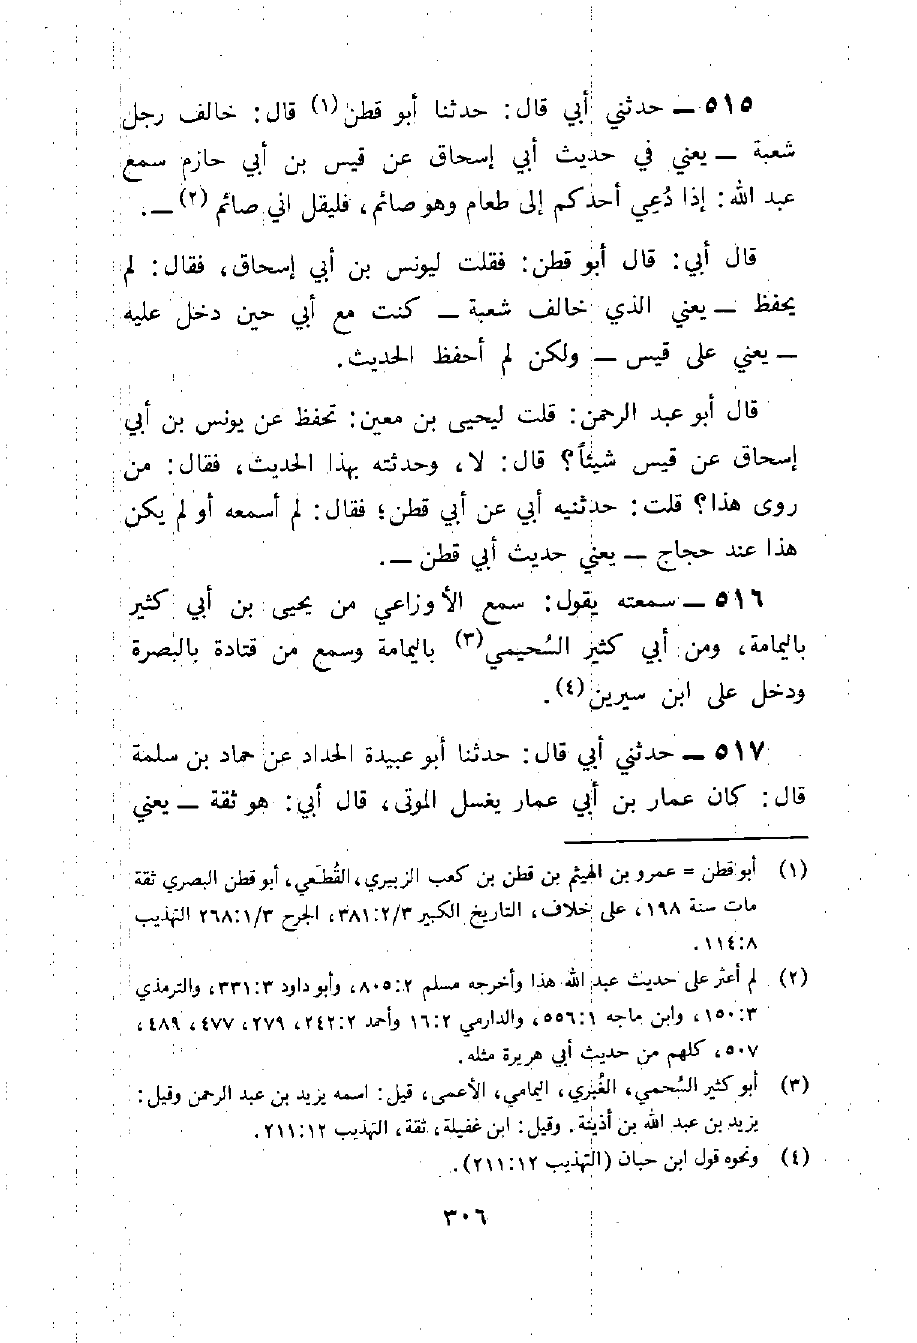 ٥١٥ ــ حدثني أبي قال: حدثنا أبو قطن(١) قال: خالف رجل
شعبة ــ يعني في حديث أبي إسحاق عن قيس بن أبي حازم سمع
عبد الله: إذا دُعِي أحدكم إلى طعام وهو صائم، فليقل اني صائم (٢) ــ.
قال أبي: قال أبو قطن: فقلت ليونس بن أبي إسحاق، فقال: لم
يحفظ ــ يعني الذي خالف شعبة ــ كنت مع أبي حين دخل عليه
ــ يعني على قيس ــ ولكن لم أحفظ الحديث.
قال أبو عبد الرحمن: قلت ليحيى بن معين: تحفظ عن يونس بن أبي
إسحاق عن قيس شيئاً؟ قال: لا، وحدثته بهذا الحديث، فقال: من
روى هذا؟ قلت: حدثنيه أبي عن أبي قطن؛ فقال: لم أسمعه أو لم يكن
هذا عند حجاج ــ يعني حديث أبي قطن ــ.
٥١٦ ــ سمعته يقول: سمع الأوزاعي من يحيى بن أبي كثير
باليمامة، ومن أبي كثير السُحيمي(٣) باليمامة وسمع من قتادة بالبصرة
ودخل على ابن سيرين(٤).
٥١٧ ــ حدثني أبي قال: حدثنا أبو عبيدة الحداد عن حماد بن سلمة
قال: كان عمار بن أبي عمار يغسل الموتى، قال أبي: هو ثقة ــ يعني
(١) أبو قطن = عمرو بن الهيثم بن قطن بن كعب الزبيري، القُطَعي، أبو قطن البصري ثقة
مات سنة ١٩٨، على خلاف، التاريخ الكبير ٣٨١:٢/٣، الجرح ٢٦٨:١/٣ التهذيب
١١٤:٨.
(٢) لم أعثر على حديث عبد الله هذا وأخرجه مسلم ٨٠٥:٢، وأبو داود ٣٣١:٣، والترمذي
١٥٠:٣، وابن ماجه ٥٥٦:١، والدارمي ١٦:٢ وأحمد ٢٤٢:٢، ٢٧٩، ٤٧٧، ٤٨٩،
٥٠٧، كلهم من حديث أبي هريرة مثله.
(٣) أبو كثير السُحمي، الغُبَري، اليمامي، الأعمى، قيل: اسمه يزيد بن عبد الرحمن وقيل:
يزيد بن عبد الله بن أذينة. وقيل: ابن غفيلة، ثقة، التهذيب ٢١١:١٢.
(٤) ونحوه قول ابن حبان (التهذيب ٢١١:١٢).
٣٠٦